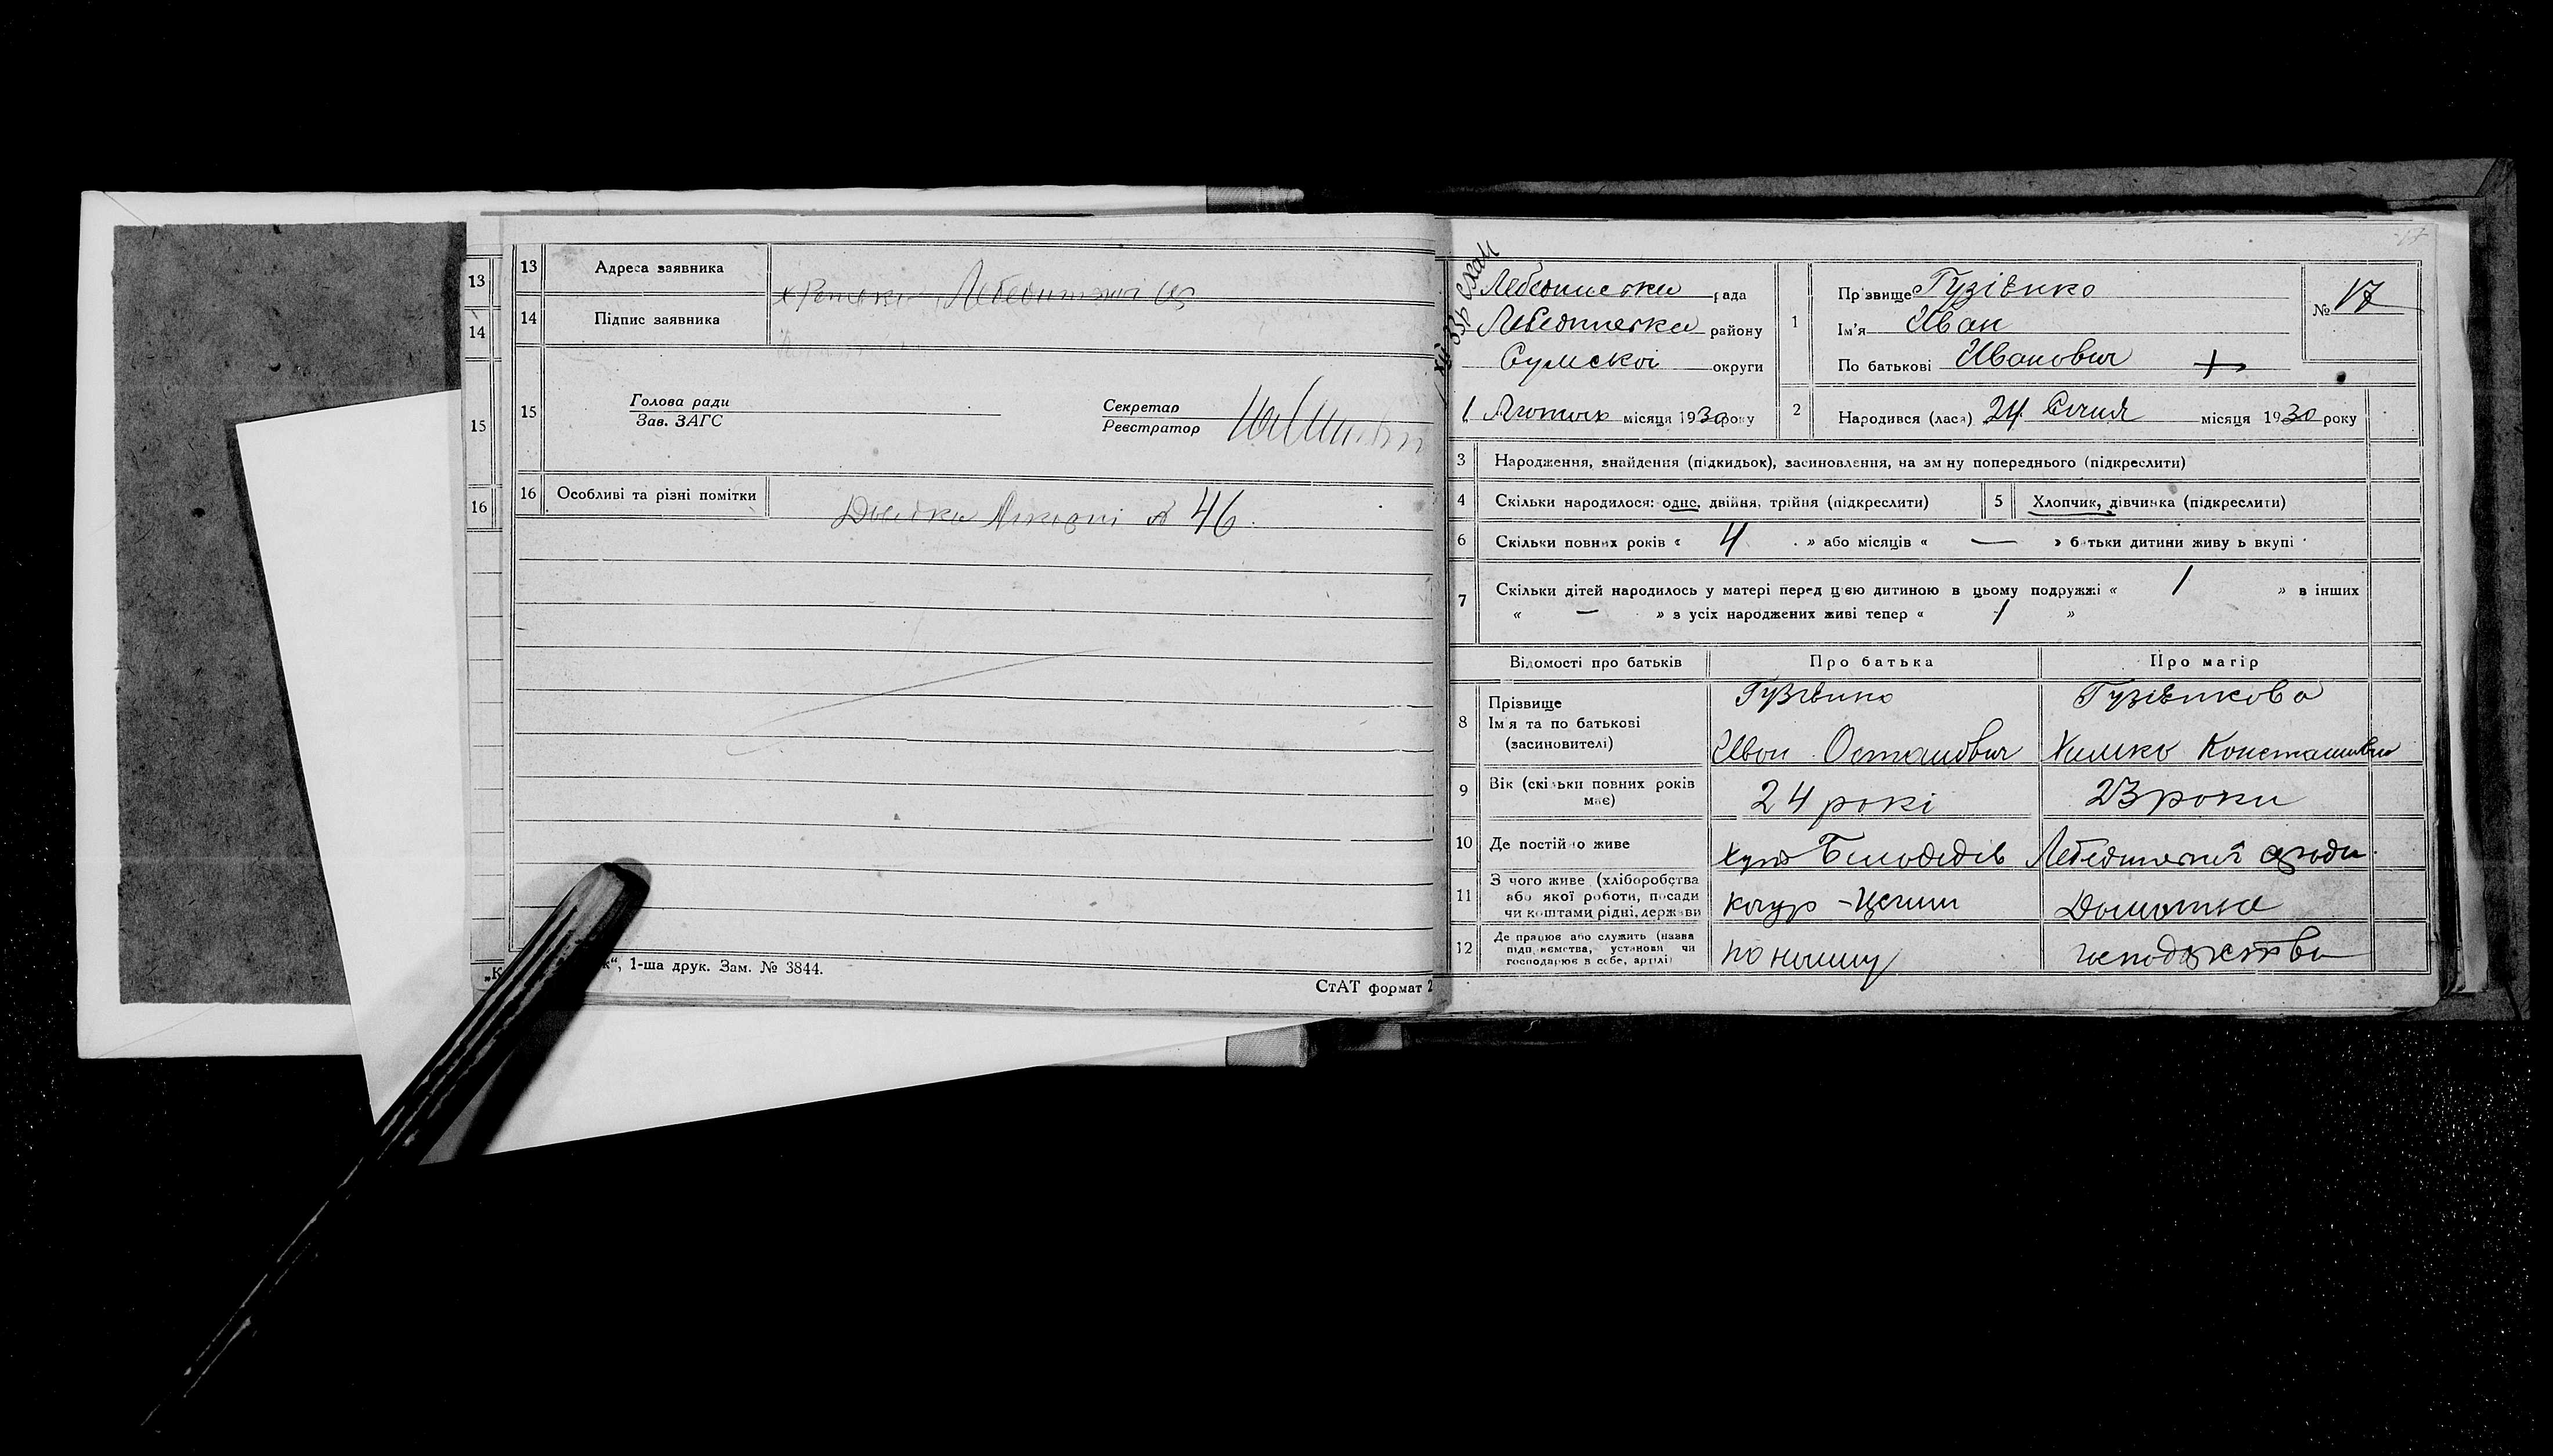 13
14
15
16
13 Адреса заявника
14 Підпис заявника
15 Голова ради
Зав. ЗАГС
Секретар
Реєстратор
16 Особливі та різні помітки
Довідка № 46.
1-ша друк. Зам. № 3844.
СтАТ формат 2
17
Лебединська рада
Лебединська району
Сумської округи
1 Лютого місяця 1930 року
1 Прізвище Гузівнко
Ім'я Иван
По батькові Иванович +
№ 17
2 Народився (лась) 24 Січня місяця 1930 року
3 Народження, знайдення (підкидьок), засиновлення, на зміну попереднього (підкреслити)
4 Скільки народилося: одне, двійня, трійня (підкреслити)
5 Хлопчик, дівчинка (підкреслити)
6 Скільки повних років « 4 » або місяців « — » батьки дитини живуть вкупі
7 Скільки дітей народилось у матері перед цією дитиною в цьому подружжі « 1 » в інших
« — » з усіх народжених живі тепер « 1 »
Відомості про батьків
Про батька
Про матір
8 Прізвище
Ім'я та по батькові
(засиновителі)
Гузівнко
Иван Остапович
Гузівнкова
Химка
9 Вік (скільки повних років
має)
24 рокі
23 роки
10 Де постійно живе
Хут Білодідів Лебединської
11 З чого живе (хліборобства
або якої роботи, посади
чи коштами рідні, держави
Домашнє
12 Де працює або служить (назва
підприємства, установи чи
господарює в себе, артілі)
по найму
господарство